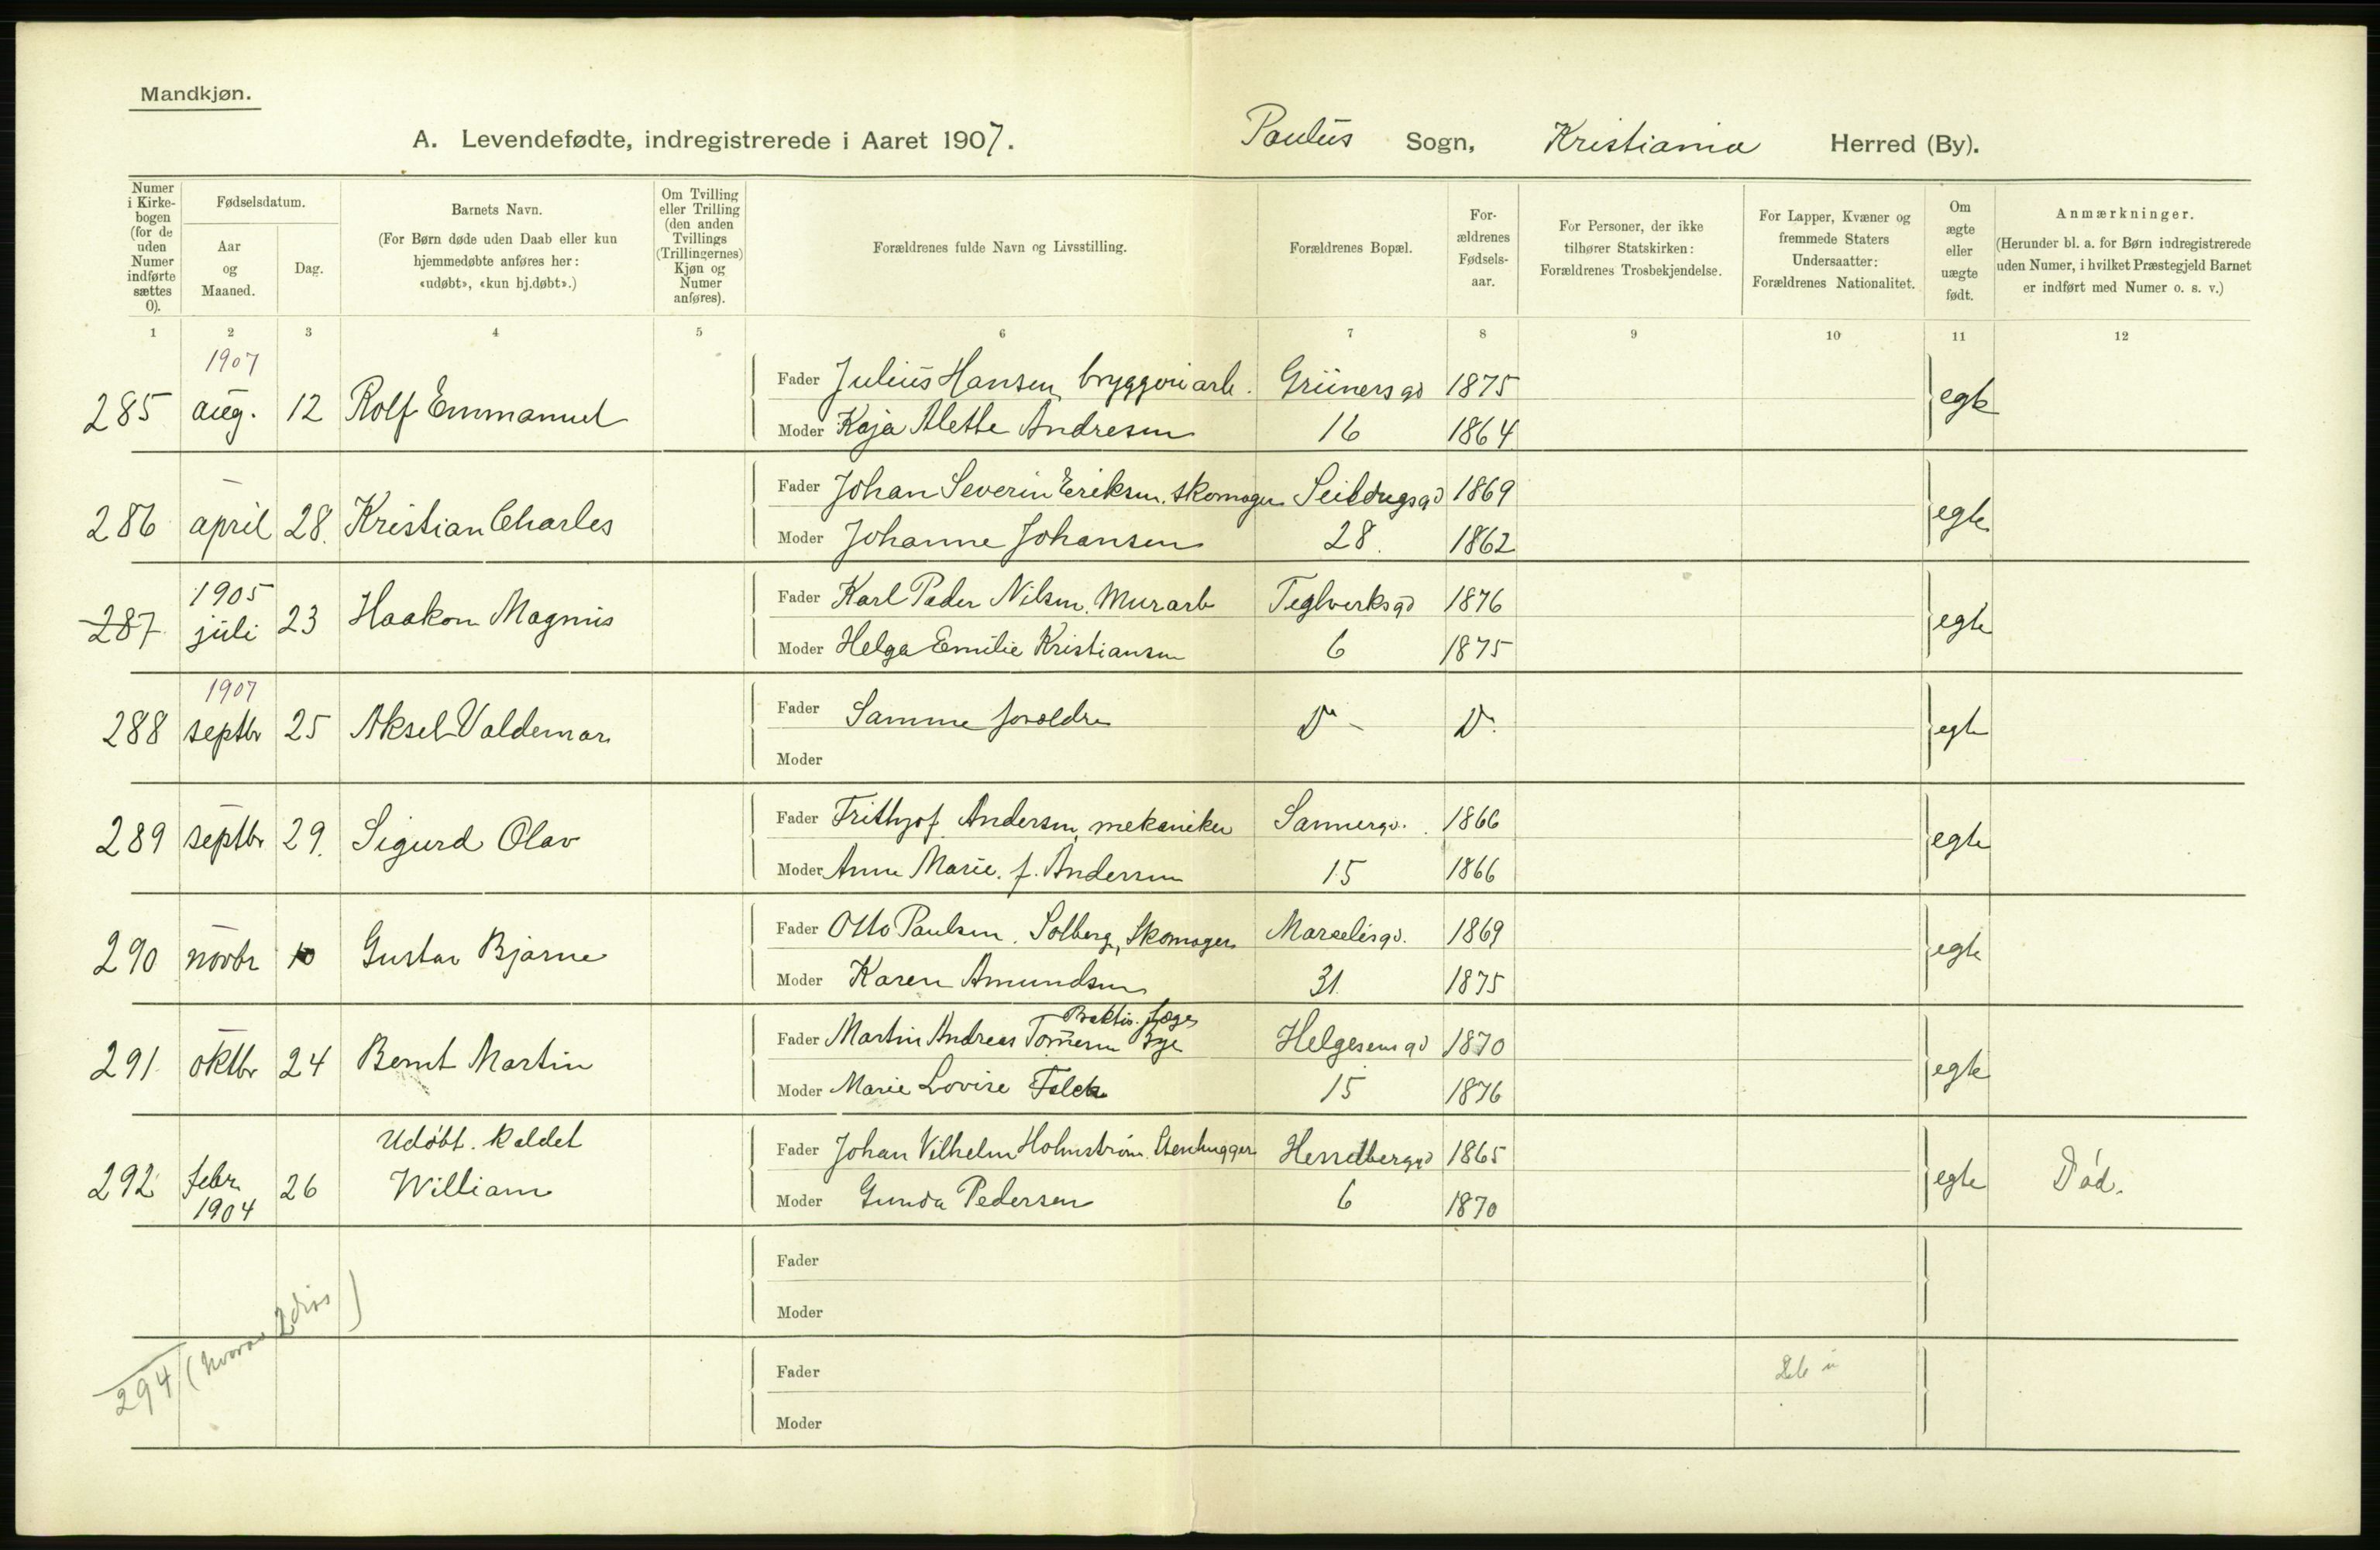 Mandkjøn.
A. Levendefødte, indregistrerede i Aaret 1907. Paulus Sogn, Kristiania Herred (By).
Numer i Kirkebogen (for de uden Numer indførte sættes 0).
Fødselsdatum.
Aar og Maaned.
Dag.
Barnets Navn.
(For Børn døde uden Daab eller kun hjemmedøbte anføres her: «udøbt», «kun hj.døbt».)
Om Tvilling eller Trilling (den anden Tvillings (Trillingernes) Kjøn og Numer anføres).
Forældrenes fulde Navn og Livsstilling.
Forældrenes Bopæl.
Forældrenes Fødselsaar.
For Personer, der ikke tilhører Statskirken: Forældrenes Trosbekjendelse.
For Lapper, Kvæner og fremmede Staters Undersaatter: Forældrenes Nationalitet.
Om ægte eller uægte født.
Anmærkninger.
(Herunder bl. a. for Børn indregistrerede uden Numer, i hvilket Præstegjeld Barnet er indført med Numer o. s. v.)
1 2 3 4 5 6 7 8 9 10 11 12
1907
285 aug. 12 Rolf Emmanuel Fader Julius Hansen, bryggeriarb. Grünersgd 1875 egte
Moder Kaja Alette Andresen 16 1864
286 april 28. Kristian Charles Fader Johan Severin Eriksen. skomager Seildugsgd 1869 egte
Moder Johanne Johansen 28. 1862
1905
287 juli 23 Haakon Magnus Fader Karl Peder Nilsen. Murarb Teglverksgd 1876 egte
Moder Helga Emilie Kristiansen 6 1875
1907
288 septbr 25 Aksel Valdemar Fader Samme foreldre Do - Do. egte
Moder
289 septbr 29. Sigurd Olav Fader Frithjof Andersen, mekaniker Sannergd. 1866 egte
Moder Anne Marie. f. Andersen 15 1866
290 novbr 10 Gustav Bjarne Fader Otto Paulsen. Solberg, Skomager Marselisgd. 1869 egte
Moder Karen Amundsen 31. 1875
Praktis. læge
291 oktbr 24 Bernt Martin Fader Martin Andreas Bye Helgesensgd 1870 egte
Moder Marie Lovise Falck 15 1876
Udøbt. kaldet
292 febr. 1904 26 William Fader Johan Vilhelm Holmstrøm. Stenhugger Hesselbergsgd 1865 egte Død.
Moder Gunda Pedersen 6 1870
Fader
Moder
294 (hvorav 2 )
Fader
Moder